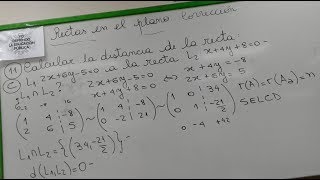 Rectas en el plano Corrección
11 Calcular la distancia de la recta
C L₁ 2x+6y-5=0 a la recta L₂ x+4y+8=0
L₁∩L₂? x+4y+8=0 ⇔ x+4y=-8
2x+6y=5
(1 4 | -8; 2 6 | 5) ~ (1 4 | -8; 0 -2 | 21) ~ (1 0 | 34; 0 1 | -21/2) r(A)=r(A₂)=n
SELCD
0 -4 +42
L₁∩L₂={(34,-21/2)}
d(L₁,L₂)=0